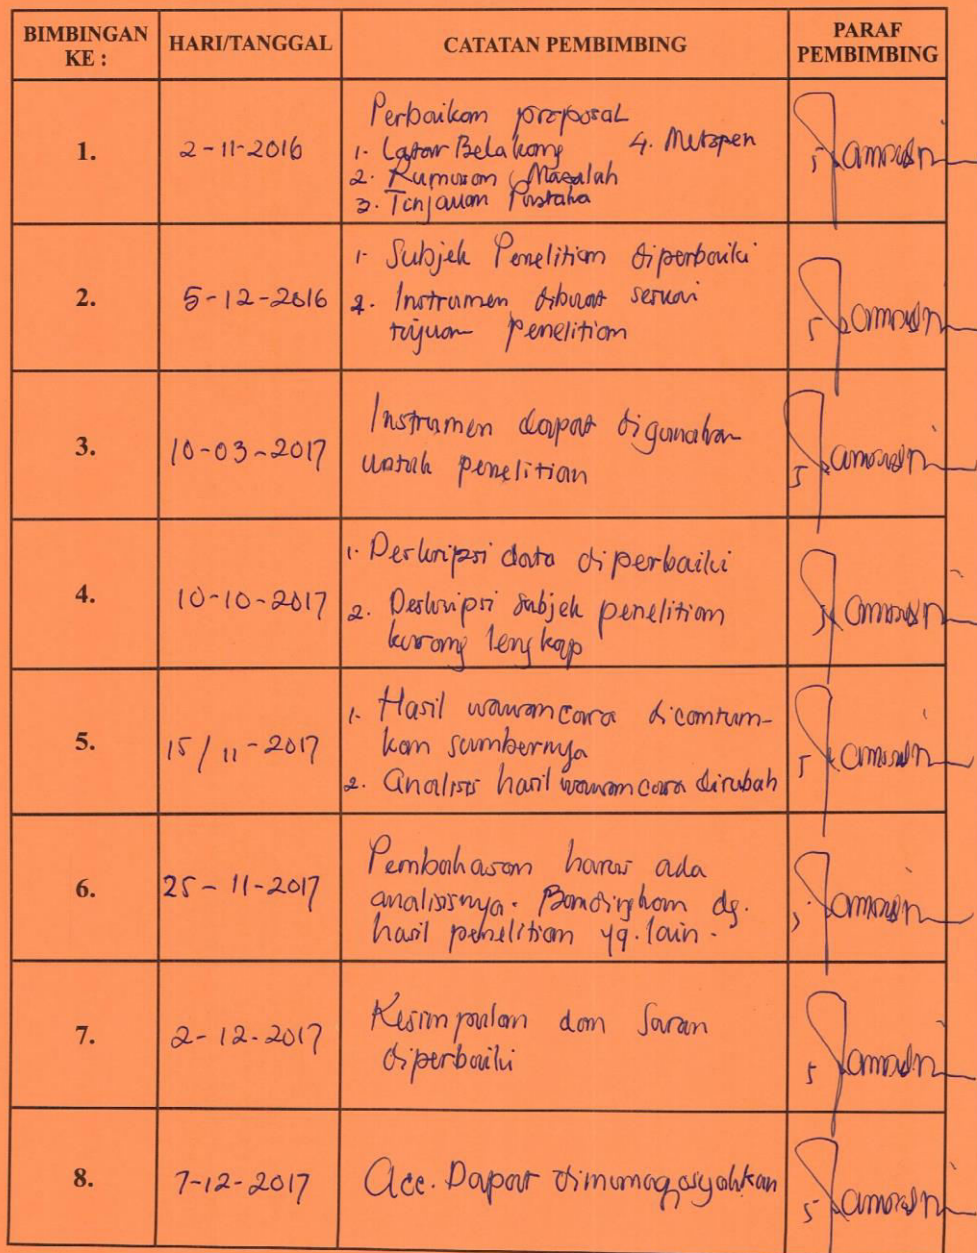 BIMBINGAN KE : HARI/TANGGAL CATATAN PEMBIMBING PARAF PEMBIMBING
1. 2-11-2016 Perbaikan proposal
1. Latar Belakang 4. Metopen
2. Rumusan Masalah
3. Tinjauan Pustaka
2. 5-12-2016 1. Subjek Penelitian diperbaiki
2. Instrumen dibuat sesuai
tujuan penelitian
3. 10-03-2017 Instrumen dapat digunakan
untuk penelitian
4. 10-10-2017 1. Deskripsi data diperbaiki
2. Deskripsi subjek penelitian
kurang lengkap
5. 15/11-2017 1. Hasil wawancara dicantum-
kan sumbernya
2. Analisis hasil wawancara dirubah
6. 25-11-2017 Pembahasan harus ada
analisisnya. Bandingkan dg.
hasil penelitian yg. lain.
7. 2-12-2017 Kesimpulan dan Saran
diperbaiki
8. 7-12-2017 Acc. Dapat dimunaqosyahkan